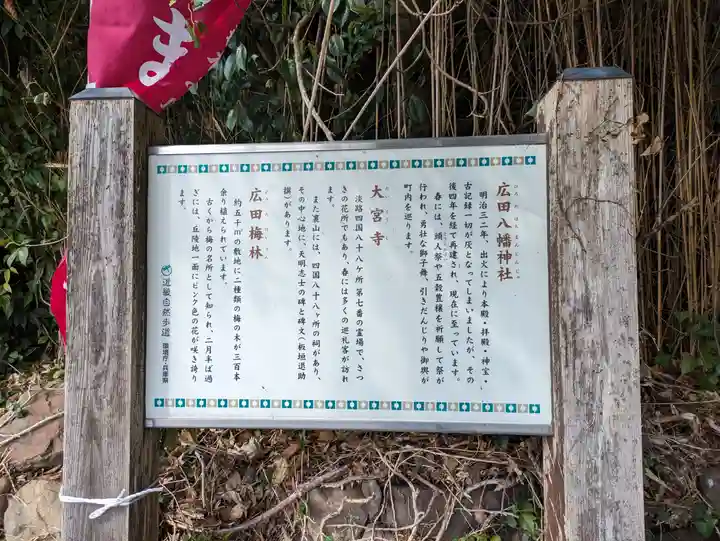 ま
広田八幡神社
ひろた はちまんじんじゃ
明治三二年、出火により本殿・拝殿・神宝・
古記録一切が灰となってしまいましたが、その
後四年を経て再建され、現在に至っています。
春には、頭人祭や五穀豊穣を祈願して祭が
行われ、勇壮な獅子舞、引きだんじりや御輿が
町内を巡ります。
大宮寺
淡路四国八十八ヶ所第七番の霊場で、さつ
きの花所でもあり、春には多くの巡礼客が訪れ
ます。
また裏山には、四国八十八ヶ所の祠があり、
その中心地に、天明志士の碑と碑文(板垣退助
撰)があります。
広田梅林
約五千㎡の敷地に二種類の梅の木が三百本
余り植えられています。
古くから梅の名所として知られ、二月半ば過
ぎには、丘陵地一面にピンク色の花が咲き誇り
ます。
近畿自然歩道
環境庁・兵庫県